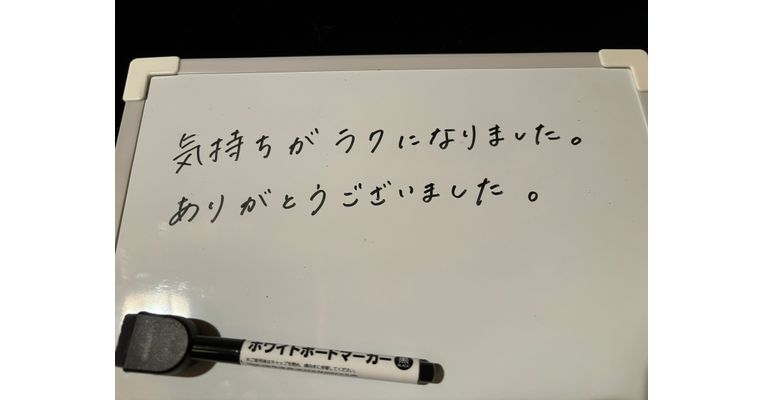 気持ちがラクになりました。
ありがとうございました。
ホワイトボードマーカー 黒